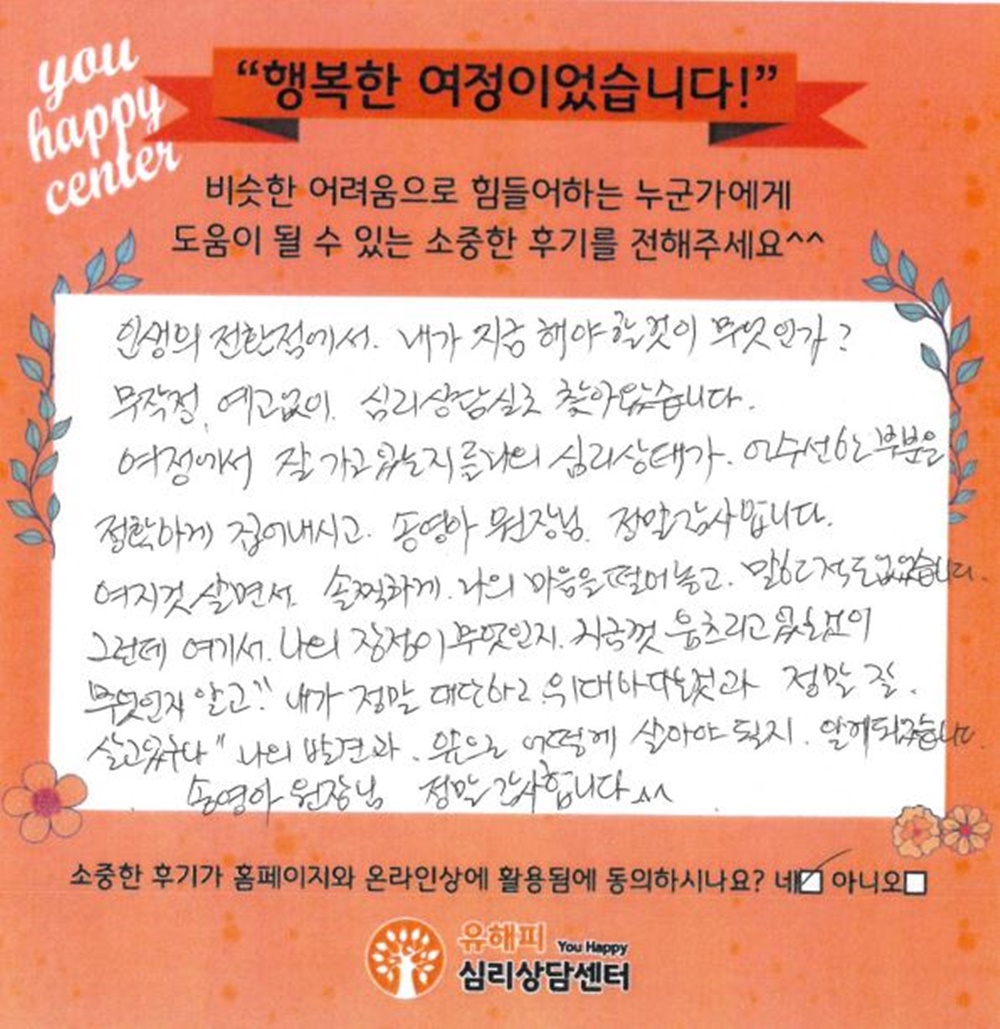 you
happy
center
“행복한 여정이었습니다!”
비슷한 어려움으로 힘들어하는 누군가에게
도움이 될 수 있는 소중한 후기를 전해주세요^^
인생의 전환점에서. 내가 지금 해야 할것이 무엇인가?
무작정, 예고없이. 심리상담실로 찾아왔습니다.
여정에서 잘 가고있는지를 나의 심리상태가. 어수선한 부분을
정확하게 집어내시고. 송영아 원장님. 정말감사합니다.
여지것 살면서. 솔찍하게. 나의 마음을 떨어놓고. 말한적도없었습니다.
그런데 여기서. 나의 장점이 무엇인지. 지금껏 움츠리고 있는것이
무엇인지 알고" 내가 정말 대단하고 위대하다는것과 정말 잘.
살고있구나" 나의 발견과. 어떻게 살아야 될지. 알게되었습니다.
송영아 원장님 정말 감사합니다 ^^
소중한 후기가 홈페이지와 온라인상에 활용됨에 동의하시나요? 네☑ 아니오□
유해피 You Happy
심리상담센터